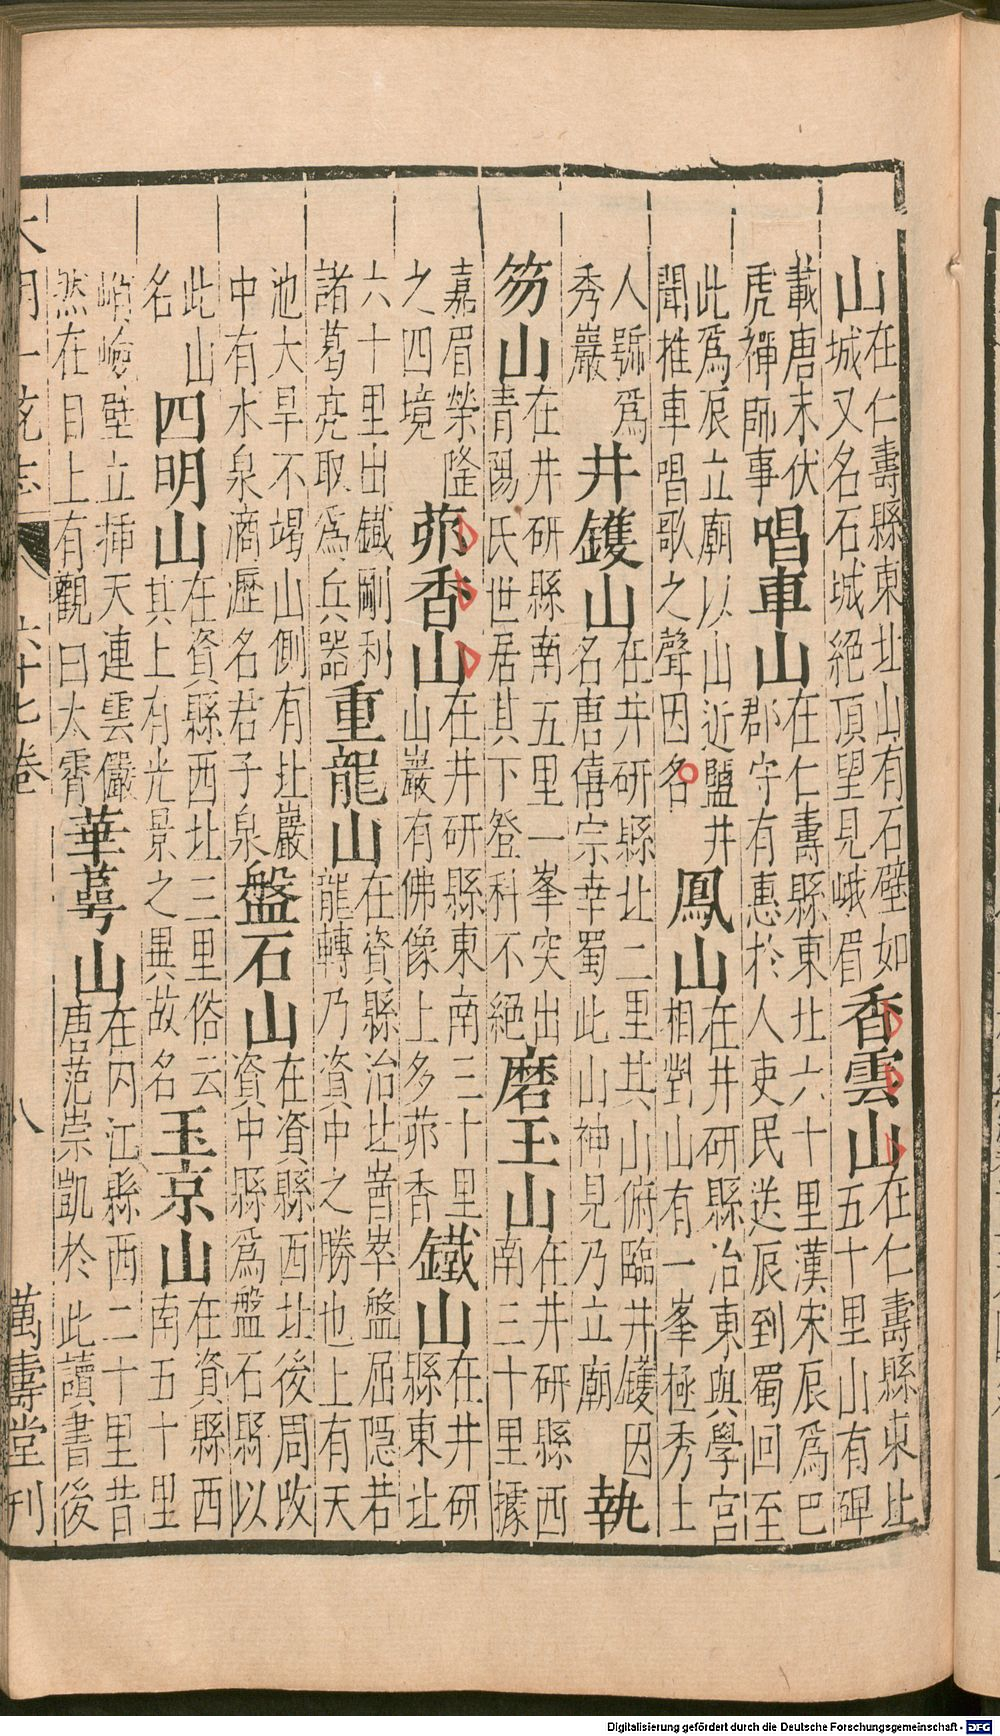 山在仁壽縣東北山有石壁如城又名石城絕頂望見峨眉香雲山在仁壽縣東北五十里山有碑
載唐末伏虎禪師事唱車山在仁壽縣東北六十里漢宋辰爲巴郡守有惠於人吏民送辰到蜀回至
此爲辰立廟以山近鹽井聞推車唱歌之聲因名鳳山在井研縣治東與學宮相對山有一峯極秀士
人號爲秀巖井鑊山在井研縣北二里其山俯臨井鑊因名唐僖宗幸蜀此山神見乃立廟執
笏山在井研縣南五里一峯突出青陽氏世居其下登科不絕磨玉山在井研縣西南三十里據
嘉眉榮隆之四境茆香山在井研縣東南三十里山巖有佛像上多茆香鐵山在井研縣東北
六十里出鐵剛利諸葛亮取爲兵器重龍山在資縣治北崷崒盤屈隱若龍轉乃資中之勝也上有天
池大旱不竭山側有北巖中有水泉滴瀝名君子泉盤石山在資縣西北後周改資中縣爲盤石縣以
此山名四明山在資縣西北三里俗云其上有光景之異故名玉京山在資縣西南五十里
峭險壁立插天連雲儼然在目上有觀曰太霄華萼山在內江縣西二十里昔唐范崇凱於此讀書後
大明一統志 六十七卷 八 萬壽堂刊
Digitalisierung gefördert durch die Deutsche Forschungsgemeinschaft - DFG